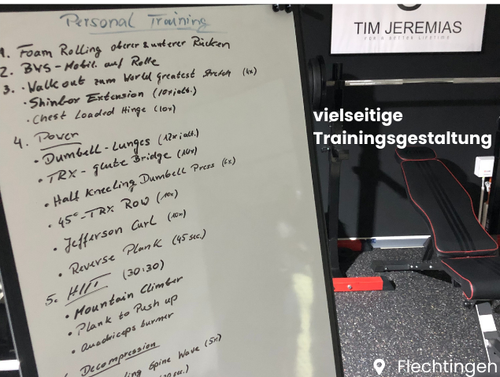 Personal Training
1. Foam Rolling oberer & unterer Rücken
2. BWS-Mobil. auf Rolle
3. • Walk out zum World greatest Stretch (4x)
• Shinbox Extension (10x jeds.)
• Chest Loaded Hinge (10x)
4. Power
• Dumbell-Lunges (12x jeds.)
• TRX-glute Bridge (14x)
• Half Kneeling Dumbell Press (6x)
• 45°-TRX Row (10x)
• Jefferson Curl (10x)
• Reverse Plank (45 sec.)
5. HIIT (30:30)
• Mountain Climber
• Plank to Push up
• Quadriceps burner
Decompression
Spine Wave (5x)
TIM JEREMIAS
FOR A BETTER LIFETIME
vielseitige
Trainingsgestaltung
Flechtingen